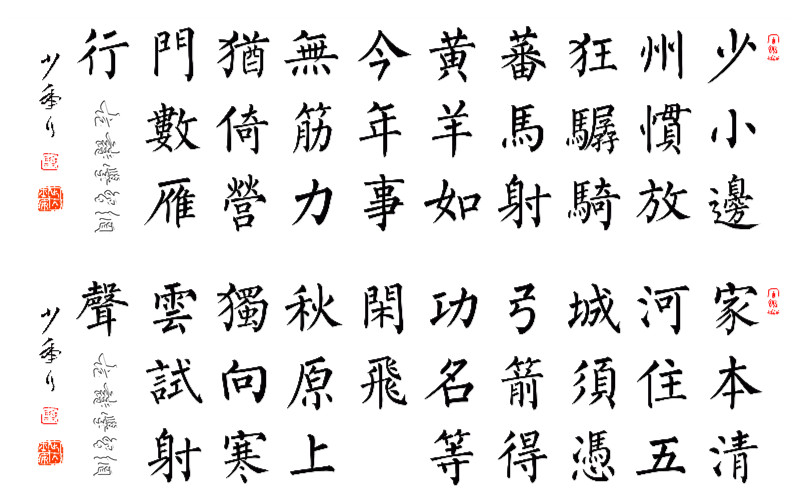 少小邊
州慣放
狂驏騎
蕃馬射
黄羊如
今年事
無筋力
猶倚營
門數雁
行
少年行
家本清
河住五
城須憑
弓箭得
功名等
閑飛
秋原上
獨向寒
雲試射
聲
少年行